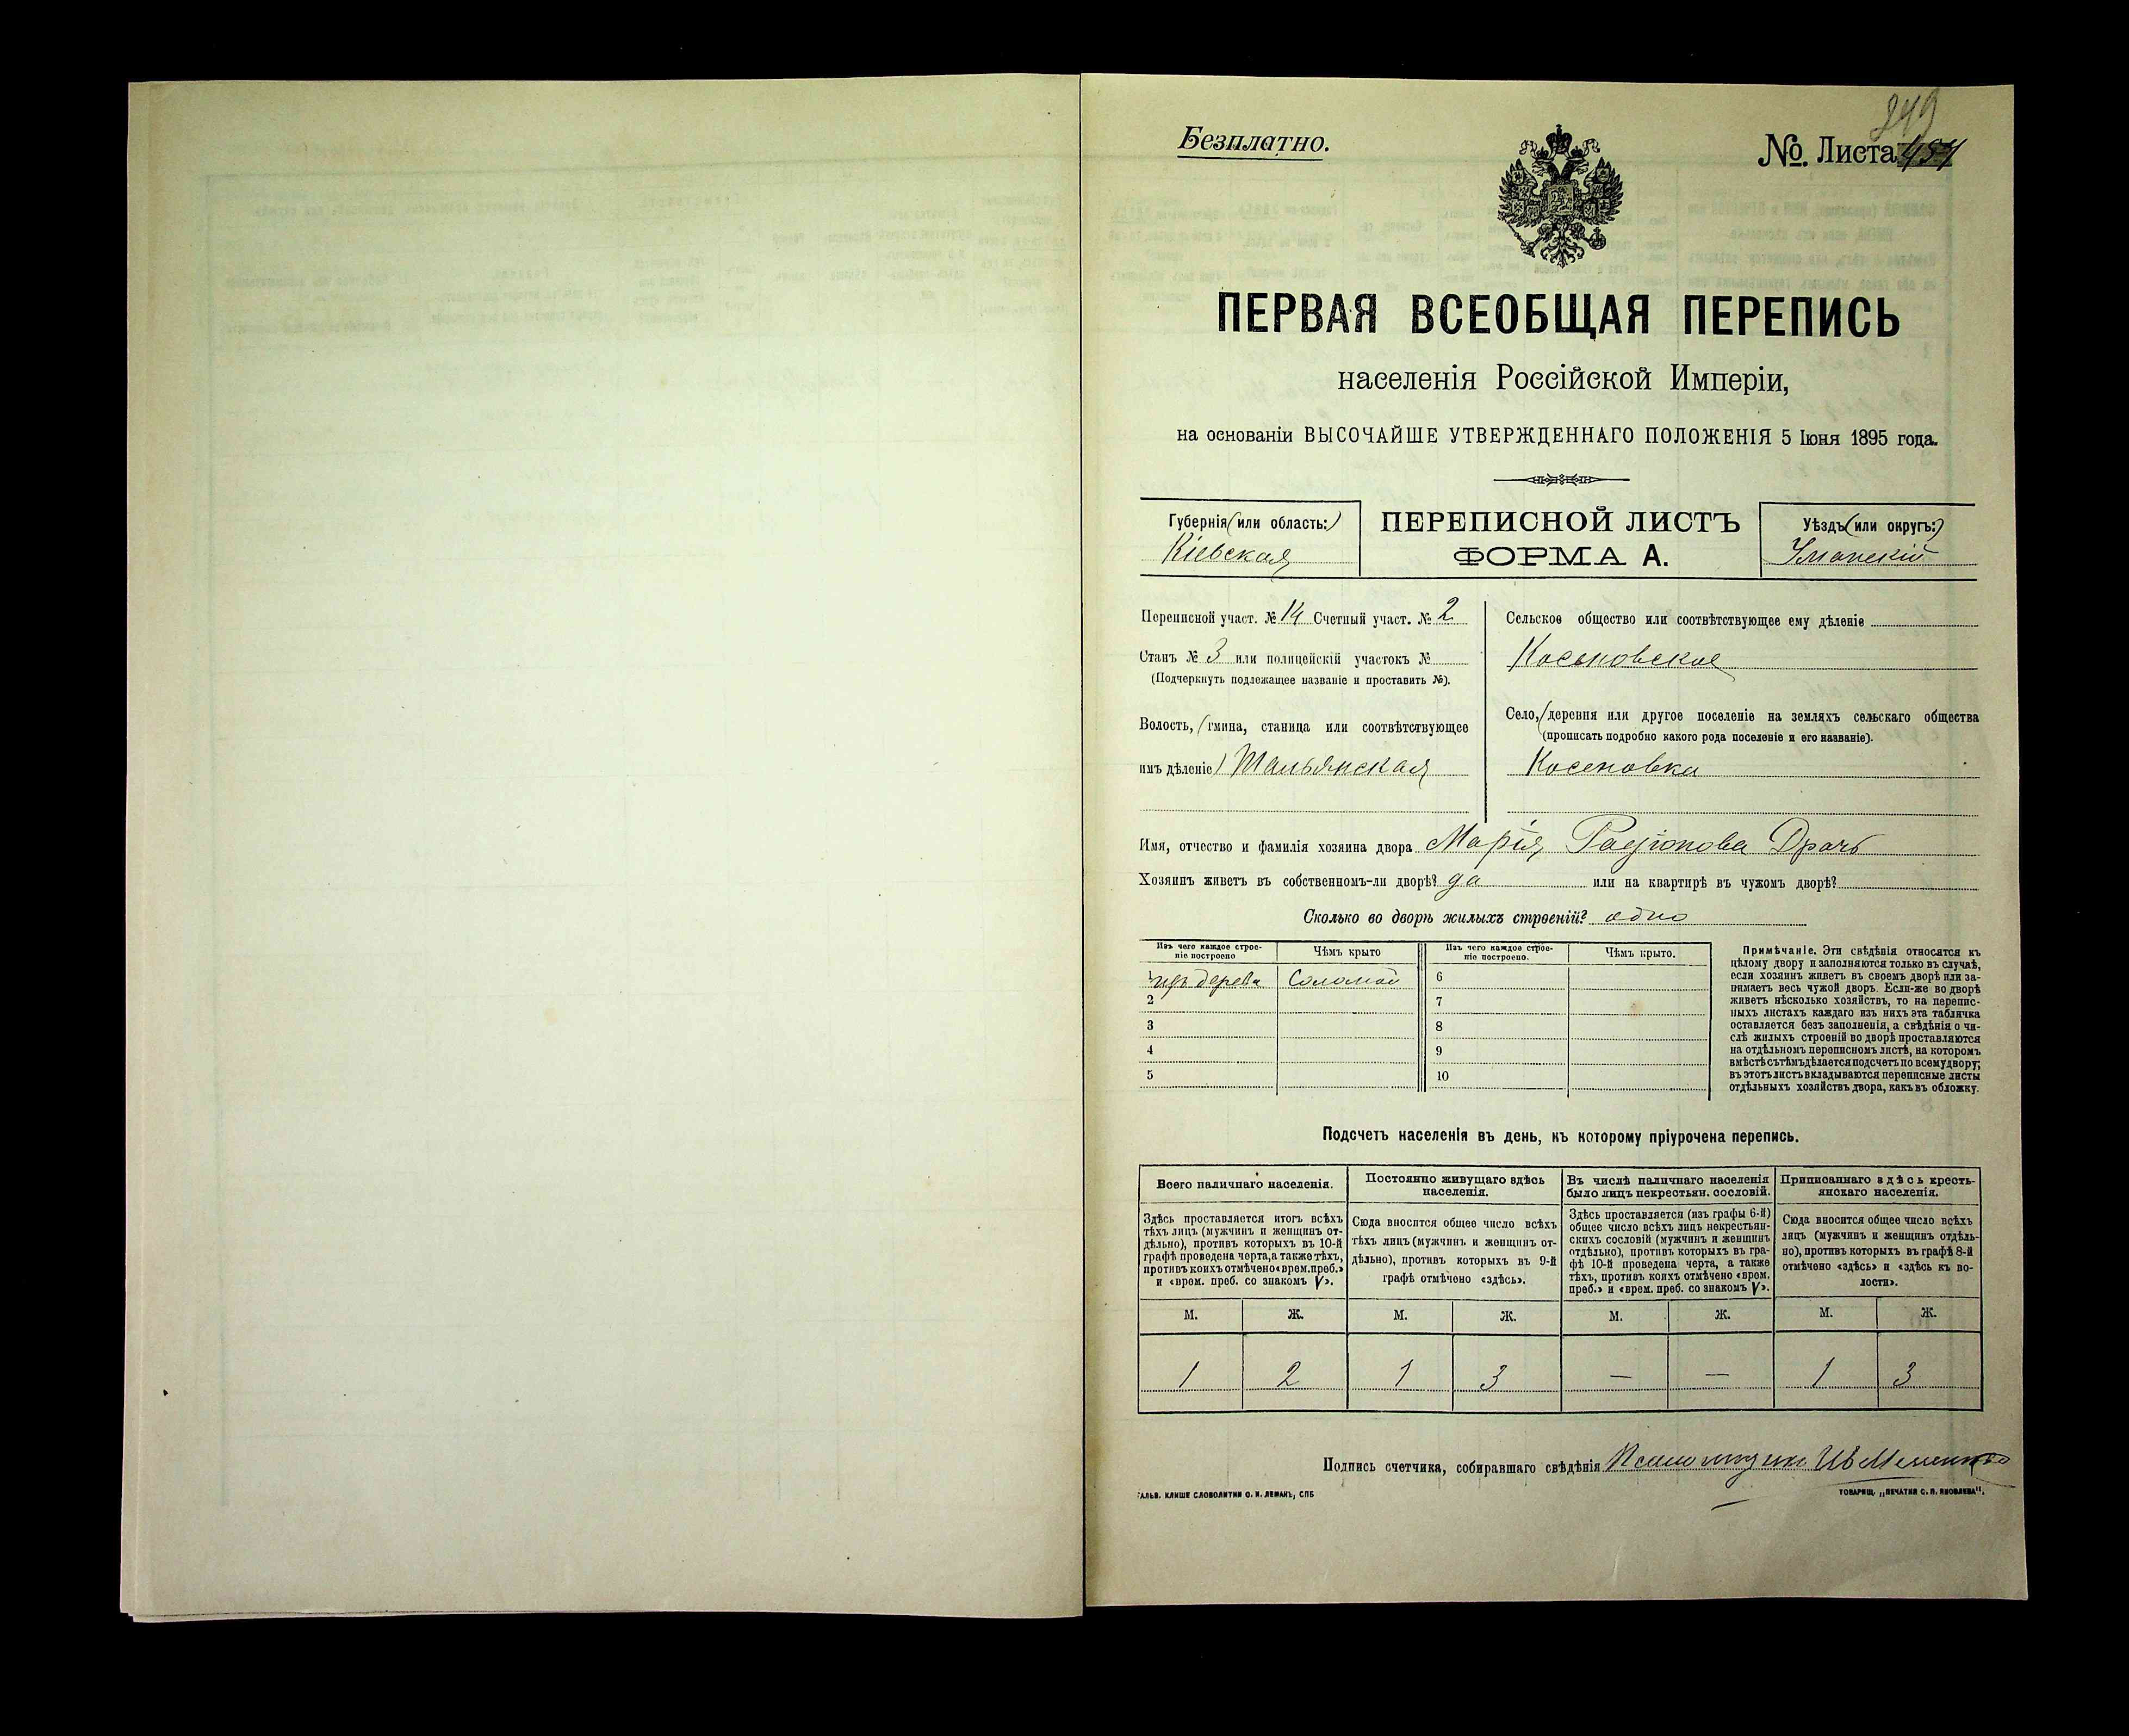 249
Безплатно.
№. Листа 454
ПЕРВАЯ ВСЕОБЩАЯ ПЕРЕПИСЬ
населенія Россійской Имперіи,
на основаніи ВЫСОЧАЙШЕ УТВЕРЖДЕННАГО ПОЛОЖЕНІЯ 5 Іюня 1895 года.
Губернія (или область:)
Кіевская
ПЕРЕПИСНОЙ ЛИСТЪ
ФОРМА А.
Уѣздъ (или округъ:)
Уманскій
Переписной участ. № 14 Счетный участ. № 2
Станъ № 3 или полицейскій участокъ №
(Подчеркнуть подлежащее названіе и проставить №).
Волость, (гмина, станица или соотвѣтствующее
имъ дѣленіе) Тальянская
Сельское общество или соотвѣтствующее ему дѣленіе
Косеновское
Село, (деревня или другое поселеніе на земляхъ сельскаго общества
(прописать подробно какого рода поселеніе и его названіе).
Косеновка
Имя, отчество и фамилія хозяина двора Марія Радіонова Драчъ
Хозяинъ живетъ въ собственномъ-ли дворѣ? да или на квартирѣ въ чужомъ дворѣ?
Сколько во дворѣ жилыхъ строеній? одно
Изъ чего каждое строе-
ніе построено
Чѣмъ крыто
Изъ чего каждое строе-
ніе построено.
Чѣмъ крыто.
1 изъ дерева Соломой 6
2 7
3 8
4 9
5 10
Примѣчаніе. Эти свѣдѣнія относятся къ
цѣлому двору и заполняются только въ случаѣ,
если хозяинъ живетъ въ своемъ дворѣ или за-
нимаетъ весь чужой дворъ. Если-же во дворѣ
живетъ нѣсколько хозяйствъ, то на перепис-
ныхъ листахъ каждаго изъ нихъ эта табличка
оставляется безъ заполненія, а свѣдѣнія о чи-
слѣ жилыхъ строеній во дворѣ проставляются
на отдѣльномъ переписномъ листѣ, на которомъ
вмѣстѣ съ тѣмъ дѣлается подсчетъ по всему двору;
въ этотъ листъ вкладываются переписные листы
отдѣльныхъ хозяйствъ двора, какъ въ обложку.
Подсчетъ населенія въ день, къ которому пріурочена перепись.
Всего наличнаго населенія.
Постоянно живущаго здѣсь
населенія.
Въ числѣ наличнаго населенія
было лицъ некрестьян. сословій.
Приписаннаго здѣсь кресть-
янскаго населенія.
Здѣсь проставляется итогъ всѣхъ
тѣхъ лицъ (мужчинъ и женщинъ от-
дѣльно), противъ которыхъ въ 10-й
графѣ проведена черта, а также тѣхъ,
противъ коихъ отмѣчено «врем. преб.»
и «врем. преб. со знакомъ V».
Сюда вносится общее число всѣхъ
тѣхъ лицъ (мужчинъ и женщинъ от-
дѣльно), противъ которыхъ въ 9-й
графѣ отмѣчено «здѣсь».
Здѣсь проставляется (изъ графы 6-й)
общее число всѣхъ лицъ некрестьян-
скихъ сословій (мужчинъ и женщинъ
отдѣльно), противъ которыхъ въ гра-
фѣ 10-й проведена черта, а также
тѣхъ, противъ коихъ отмѣчено «врем.
преб.» и «врем. преб. со знакомъ V».
Сюда вносится общее число всѣхъ
лицъ (мужчинъ и женщинъ отдѣль-
но), противъ которыхъ въ графѣ 8-й
отмѣчено «здѣсь» и «здѣсь къ во-
лости».
М. Ж. М. Ж. М. Ж. М. Ж.
1 2 1 3 — — 1 3
Подпись счетчика, собиравшаго свѣдѣнія
ГАЛЬВ. КЛИШЕ СЛОВОЛИТНИ О. И. ЛЕМАНЪ, СПБ
ТОВАРИЩ. „ПЕЧАТНЯ С. П. ЯКОВЛЕВА".